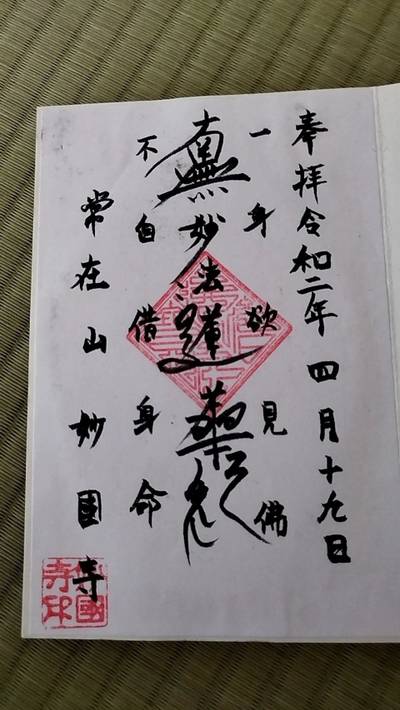 奉拝令和二年四月十九日
一身欲見佛
南無妙法蓮華経
不自借身命
常在山妙國寺
國
寺印